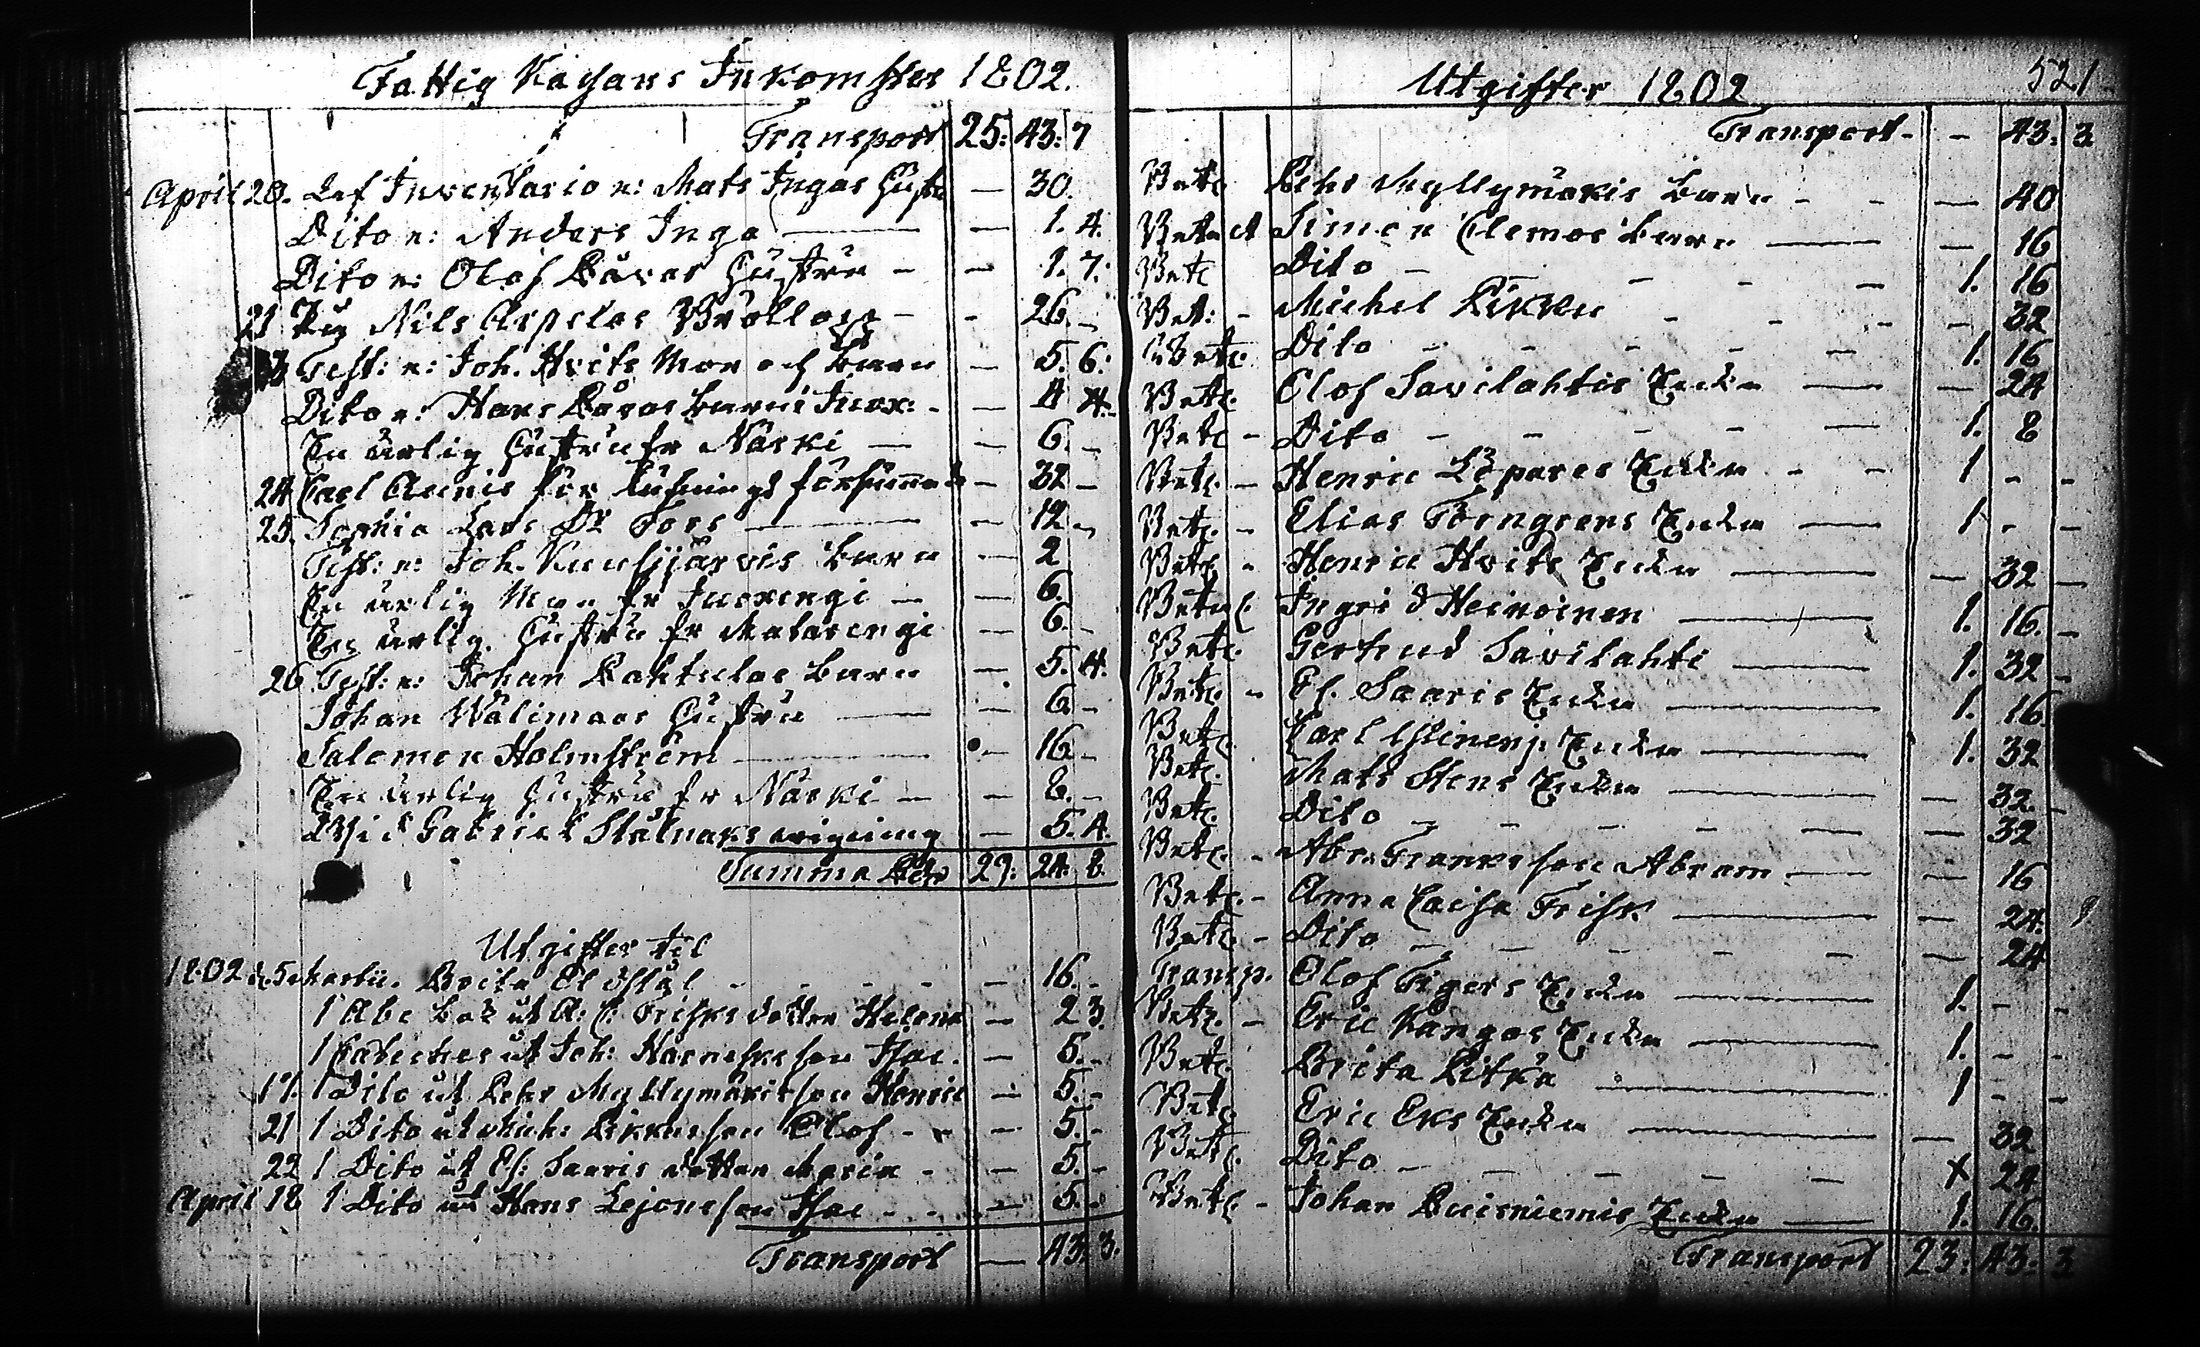 Fattig Kassans Inkomster 1802.
Transport 25: 43: 7
April 20. Lef Inventario e: Mats Ingas Hustru — 30.
Dito e: Anders Inga — — 1. 4.
Dito e: Olof Håvas Hustru — — 1. 7.
21 Nils Arpelas Bröllop — — 26. —
Test: e: Joh. Hvits Mor och Barn — 5. 6.
Dito e: Hans Barn i Juox: — — 4 4.
En ärlig Hustru fr Näski — — 6. —
24 Carl Aunis för försummelse — 32 —
25. Sophia Lars Dr Fors — — 12 —
Test: e: Joh. Kuusijärvis barn — 2
En ärlig Man fr Juoxengi — — 6.
En ärlig Hustru fr Matarengi — 6. —
26 Test: e: Johan Lahtulas barn — 5. 4.
Johan Wälimaas Hustru — — 6 —
Salomon Holmström — — 16 —
En ärlig Hustru fr Näski — — 8. —
Vid Gabriel Stålnakes vigning — 5. 4.
Summa Rdr 29: 24. 8.
Utgifter til
1802 d. 5 Martii. Brita — 16. —
1 Abc Bok åt A: C: Frisks dotter Helena — 2 3.
1 Cateches åt Joh: son Isac. — 5. —
17. 1 Dito åt Pehr Myllymäkis son Henric — 5. —
21 1 Dito åt Mich: Pekkas son Olof — — 5. —
22 1 Dito åt Es: Saaris dotter Maria — — 5. —
April 18 1 Dito åt Hans Lejons son Isac — — 5. —
Transport — 43. 3.
Utgifter 1802 521
Transport — — 43. 3
Betalt Pehr Myllymäkis Barn — — — 40
Betalt Simon Clemos barn — — 16
Betalt Dito — — — 1. 16
Bet: — Michel — — — 32
Betalt Dito — — — 1. 16
Betalt Olof Savilahtis Enka — — 24
Betalt — Dito — — — 1. 8
Betalt — Henric Löpares Enka — — 1 — —
Betalt — Elias Törngrens Enka — 1 — —
Betalt — Henric Hvits Enka — — 32 —
Betalt Ingrid Heinoinen — 1. 16. —
Betalt Gertrud Savilahti — 1. 32 —
Betalt — Es. Saaris Enka — 1. 16.
Betalt Carl Enka — 1. 32
Betalt Mats Stens Enka — — 32. —
Betalt Dito — — — — 32
Betalt — Abr. Franks son Abram — — 16
Betalt — Anna Caisa Frisk — — 24.
Betalt — Dito — — — 24
Transp. Olof Tigers Enka — 1. — —
Betalt — Eric Kangas Enka — 1. — —
Betalt Brita Pitkä — 1 — —
Betalt Eric Eks Enka — — 32
Betalt Dito — — — 24
Betalt — Johan Puisniemis Enka — 1. 16.
Transport 23: 43: 3